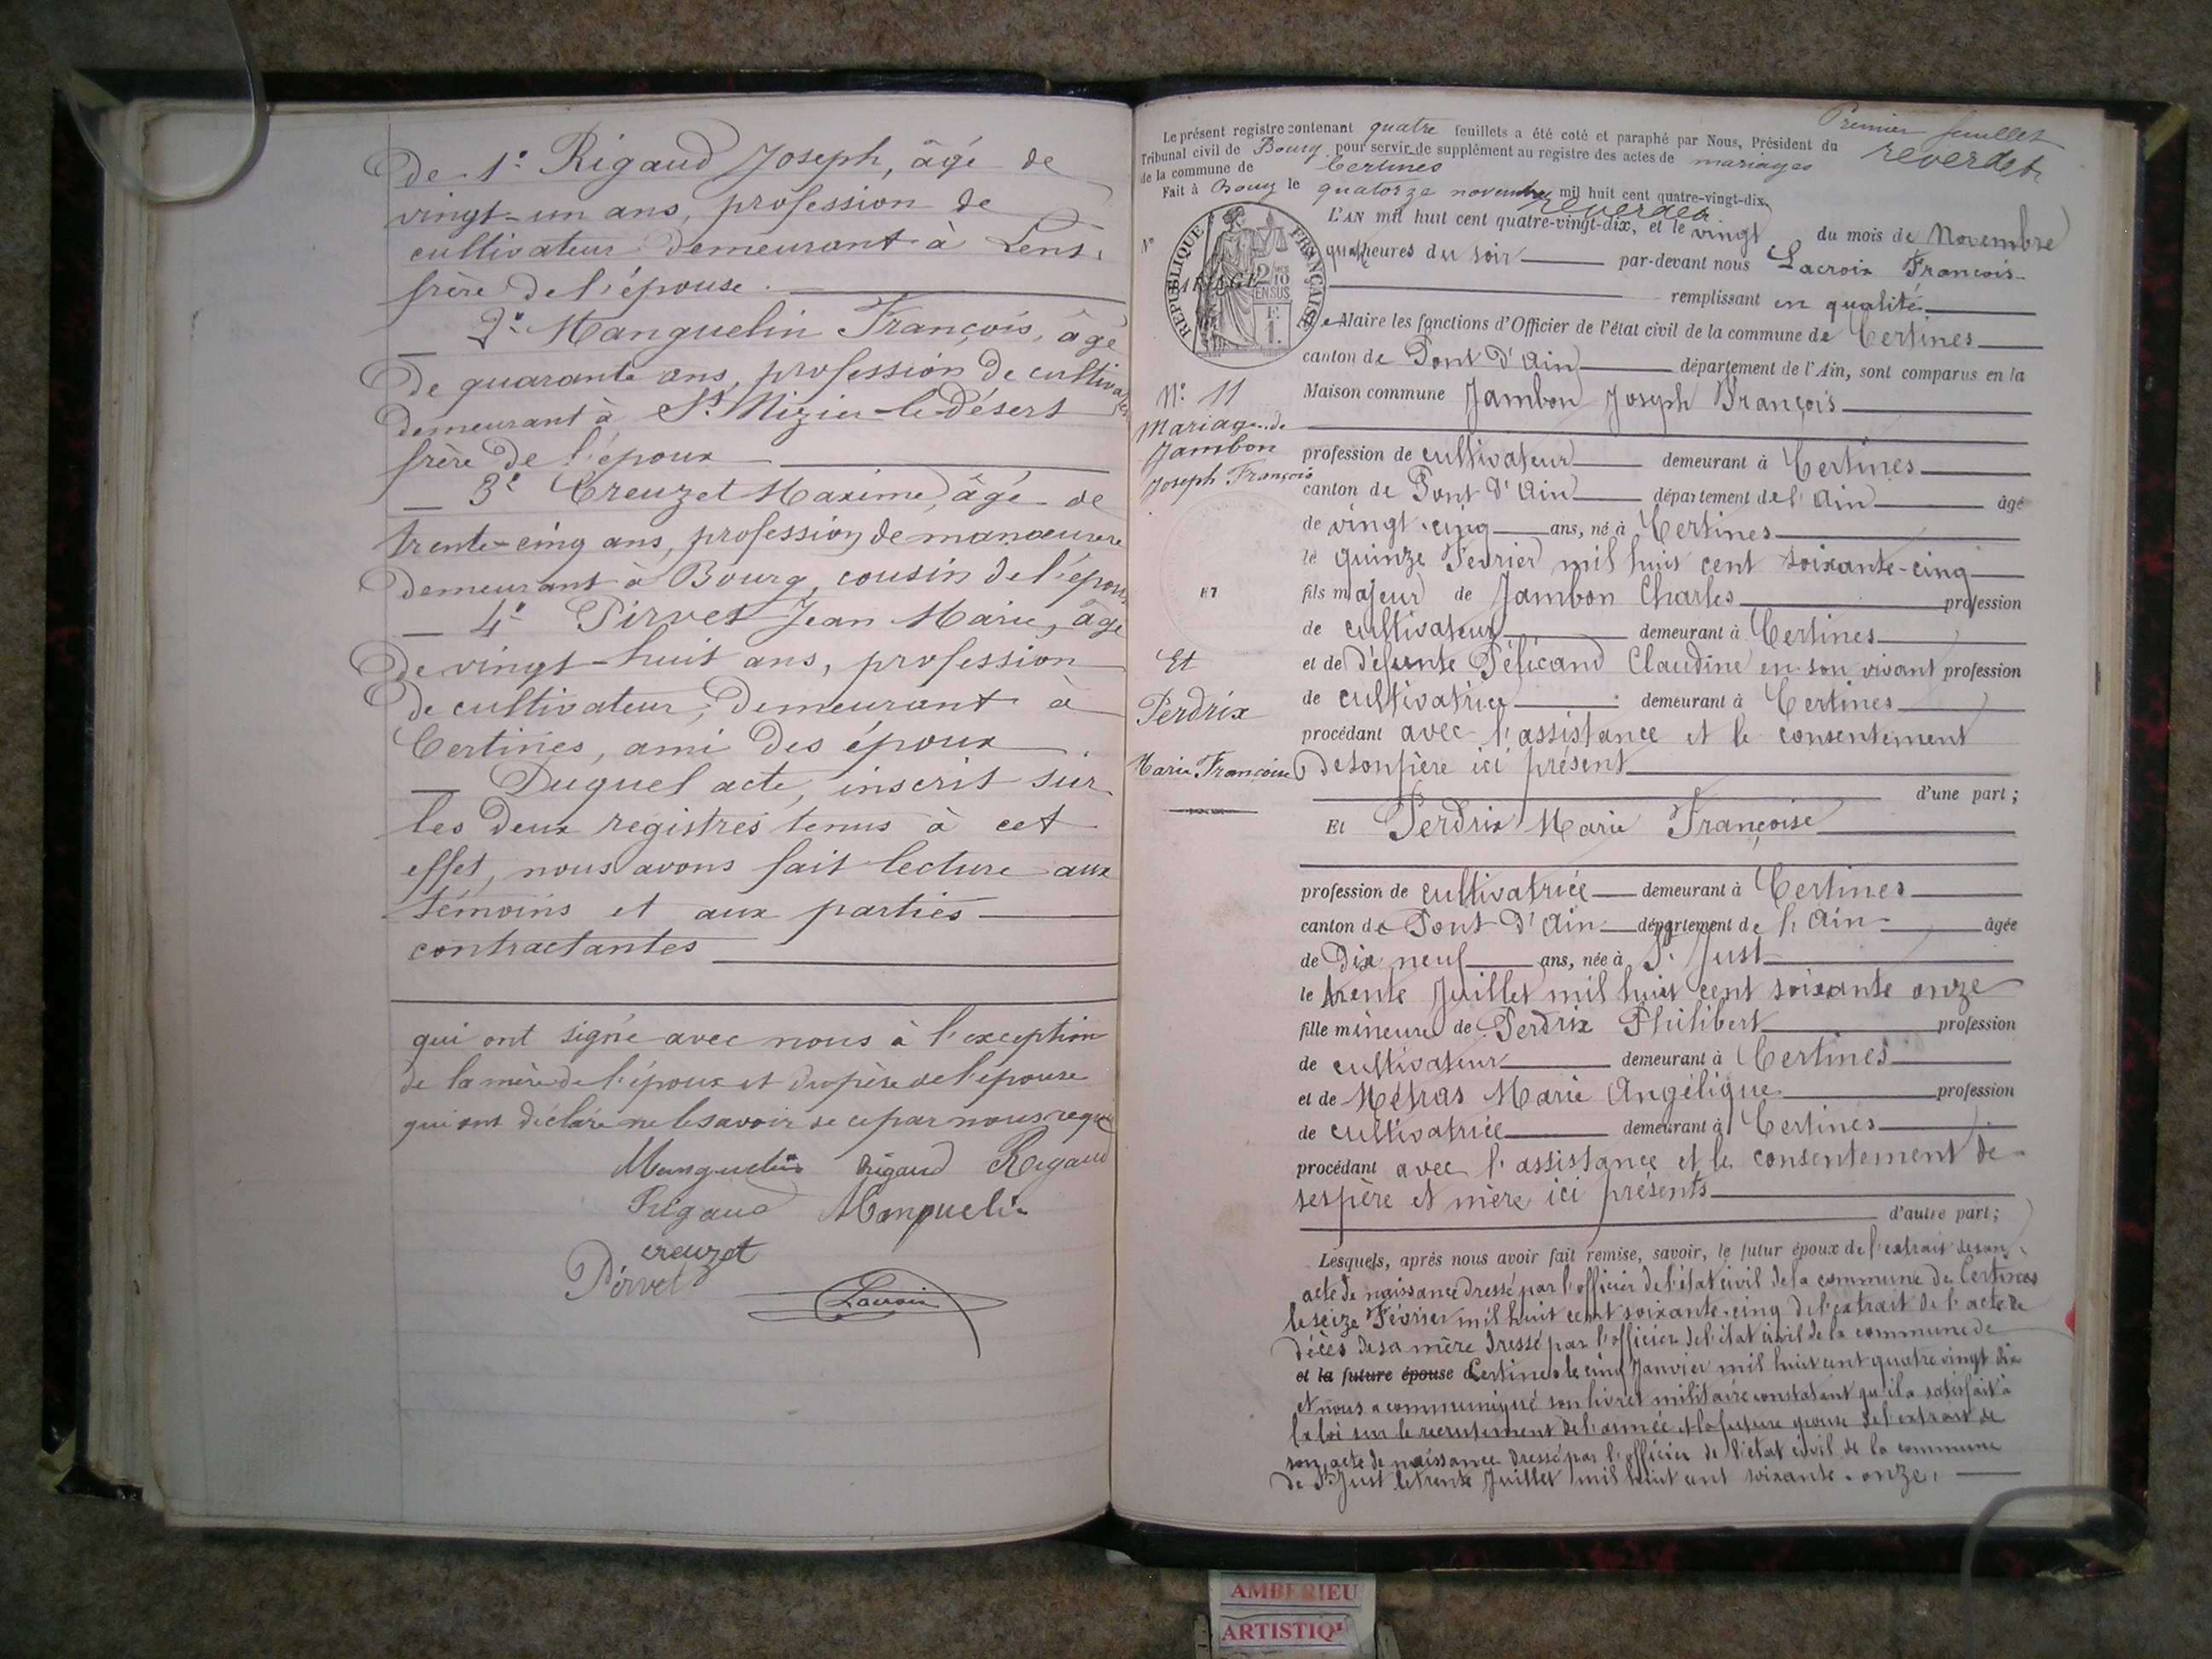 De 1° Rigaud Joseph, âgé de
vingt-un ans, profession de
cultivateur demeurant à Lent,
frère de l'épouse.
2° Manguelin François, âgé
De quarante ans, profession de cultivateur
demeurant à St Nizier-le-Désert
frère de l'époux
3° Creuzet Maxime, âgé de
trente-cinq ans, profession de manœuvre
demeurant à Bourg, cousin de l'époux
4° Pirvet Jean Marie, âgé
De vingt-huit ans, profession
De cultivateur, demeurant à
Certines, ami des époux.
Duquel acte, inscrit sur
les deux registres tenus à cet
effet, nous avons fait lecture aux
témoins et aux parties
contractantes
qui ont signé avec nous à l'exception
de la mère de l'époux et du père de l'épouse
qui ont déclaré ne le savoir de ce par nous requis
Manguelin Rigaud Rigaud
Rigaud Manguelin
creuzet
Pirvet
Lacroix
Premier feuillet
reverdet
Le présent registre contenant quatre feuillets a été coté et paraphé par Nous, Président du
Tribunal civil de Bourg pour servir de supplément au registre des actes de mariages
de la commune de Certines
Fait à Bourg le quatorze novembre mil huit cent quatre-vingt-dix.
reverdet
L'AN mil huit cent quatre-vingt-dix, et le vingt du mois de Novembre
quatre heures du soir par-devant nous Lacroix François
remplissant en qualité
de Maire les fonctions d'Officier de l'état civil de la commune de Certines
canton de Pont d'Ain département de l'Ain, sont comparus en la
Maison commune Jambon Joseph François
profession de cultivateur demeurant à Certines
canton de Pont d'Ain département de l'Ain âgé
de vingt-cinq ans, né à Certines
le quinze Février mil huit cent soixante-cinq
fils majeur de Jambon Charles profession
de cultivateur demeurant à Certines
et de défunte Pélicand Claudine en son vivant profession
de cultivatrice demeurant à Certines
procédant avec l'assistance et le consentement
de son père ici présent
d'une part ;
Et Perdrix Marie Françoise
profession de cultivatrice demeurant à Certines
canton de Pont d'Ain département de l'Ain âgée
de Dix neuf ans, née à St Just
le trente Juillet mil huit cent soixante onze
fille mineure de Perdrix Philibert profession
de cultivateur demeurant à Certines
et de Métras Marie Angélique profession
de cultivatrice demeurant à Certines
procédant avec l'assistance et le consentement de
ses père et mère ici présents
d'autre part ;
Lesquels, après nous avoir fait remise, savoir, le futur époux de l'extrait de son
acte de naissance dressé par l'officier de l'état civil de la commune de Certines
le seize Février mil huit cent soixante-cinq de l'extrait de l'acte de
décès de sa mère dressé par l'officier de l'état civil de la commune de
et la future épouse Certines le cinq Janvier mil huit cent quatre vingt dix
et nous a communiqué son livret militaire constatant qu'il a satisfait à
la loi sur le recrutement de l'armée et la future épouse de l'extrait de
son acte de naissance dressé par l'officier de l'état civil de la commune
de St Just le trente Juillet mil huit cent soixante-onze,
N°
RÉPUBLIQUE FRANÇAISE
2/10
EN SUS
F.
1.
N° 11
Mariage de
Jambon
Joseph François
Et
Perdrix
Marie Françoise
AMBERIEU
ARTISTIQ